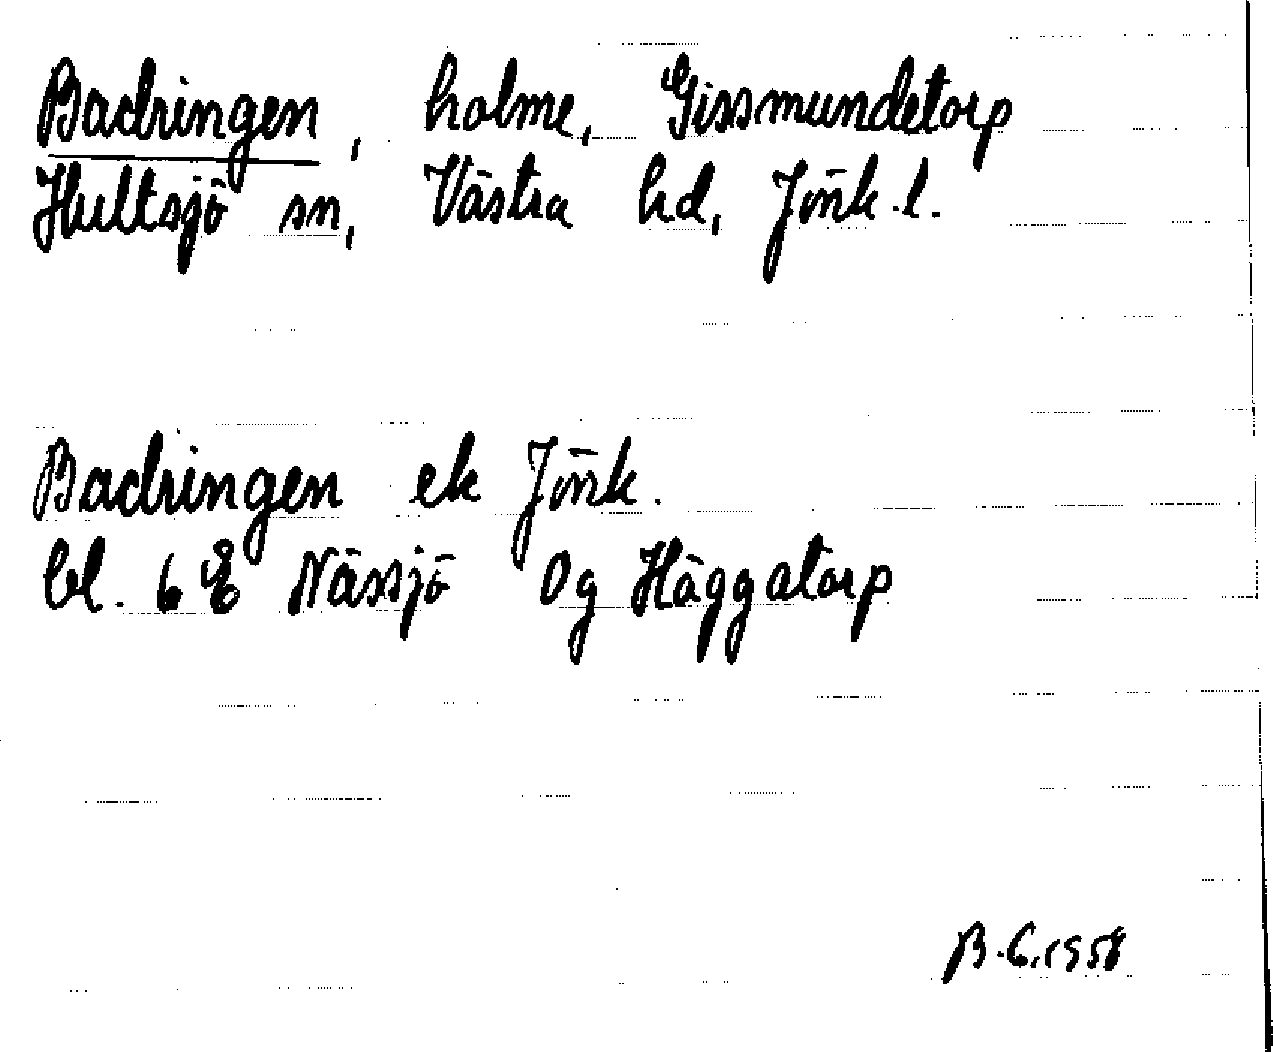 Badringen, holme, Gissmundetorp
Hultsjö sn, Västra hd, Jönk. l.
Badringen ek Jönk.
bl. 6 E Nässjö 0g Häggatorp
B.G. 1958